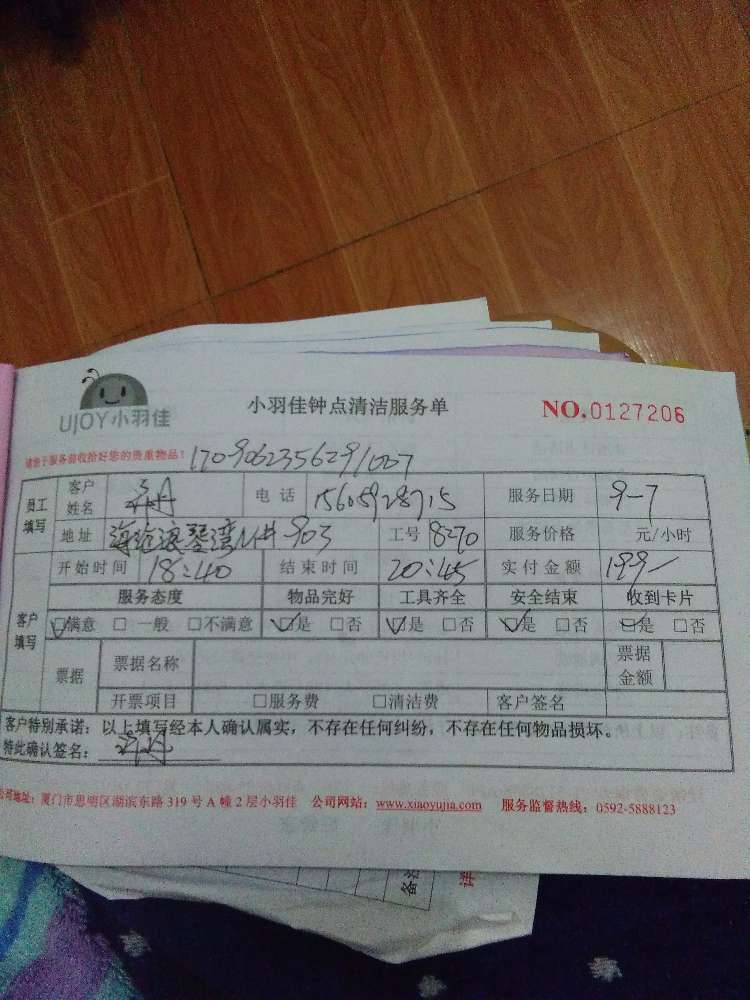 UJOY小羽佳 小羽佳钟点清洁服务单 NO.0127206
请您于服务前收拾好您的贵重物品！
员工填写 客户姓名 电话 服务日期 9-7
地址 903 工号 8270 服务价格 元/小时
客户填写 开始时间 18:40 结束时间 20:45 实付金额 199
服务态度 物品完好 工具齐全 安全结束 收到卡片
满意 一般 不满意 是 否 是 否 是 否 是 否
票据 票据名称 票据金额
开票项目 服务费 清洁费 客户签名
客户特别承诺：以上填写经本人确认属实，不存在任何纠纷，不存在任何物品损坏。
特此确认签名：
公司地址：厦门市思明区湖滨东路 319 号 A 幢 2 层小羽佳 公司网站：www.xiaoyujia.com 服务监督热线：0592-5888123